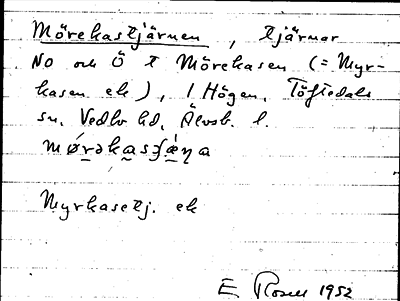 Mörekastjärnen, tjärnar
NO och Ö t Mörekasen (= Myr-
kasen ek), i Högen, Töftedals
sn. Vedbo hd. Älvsb. l.
Myrkasetj. ek
E Rosell 1952